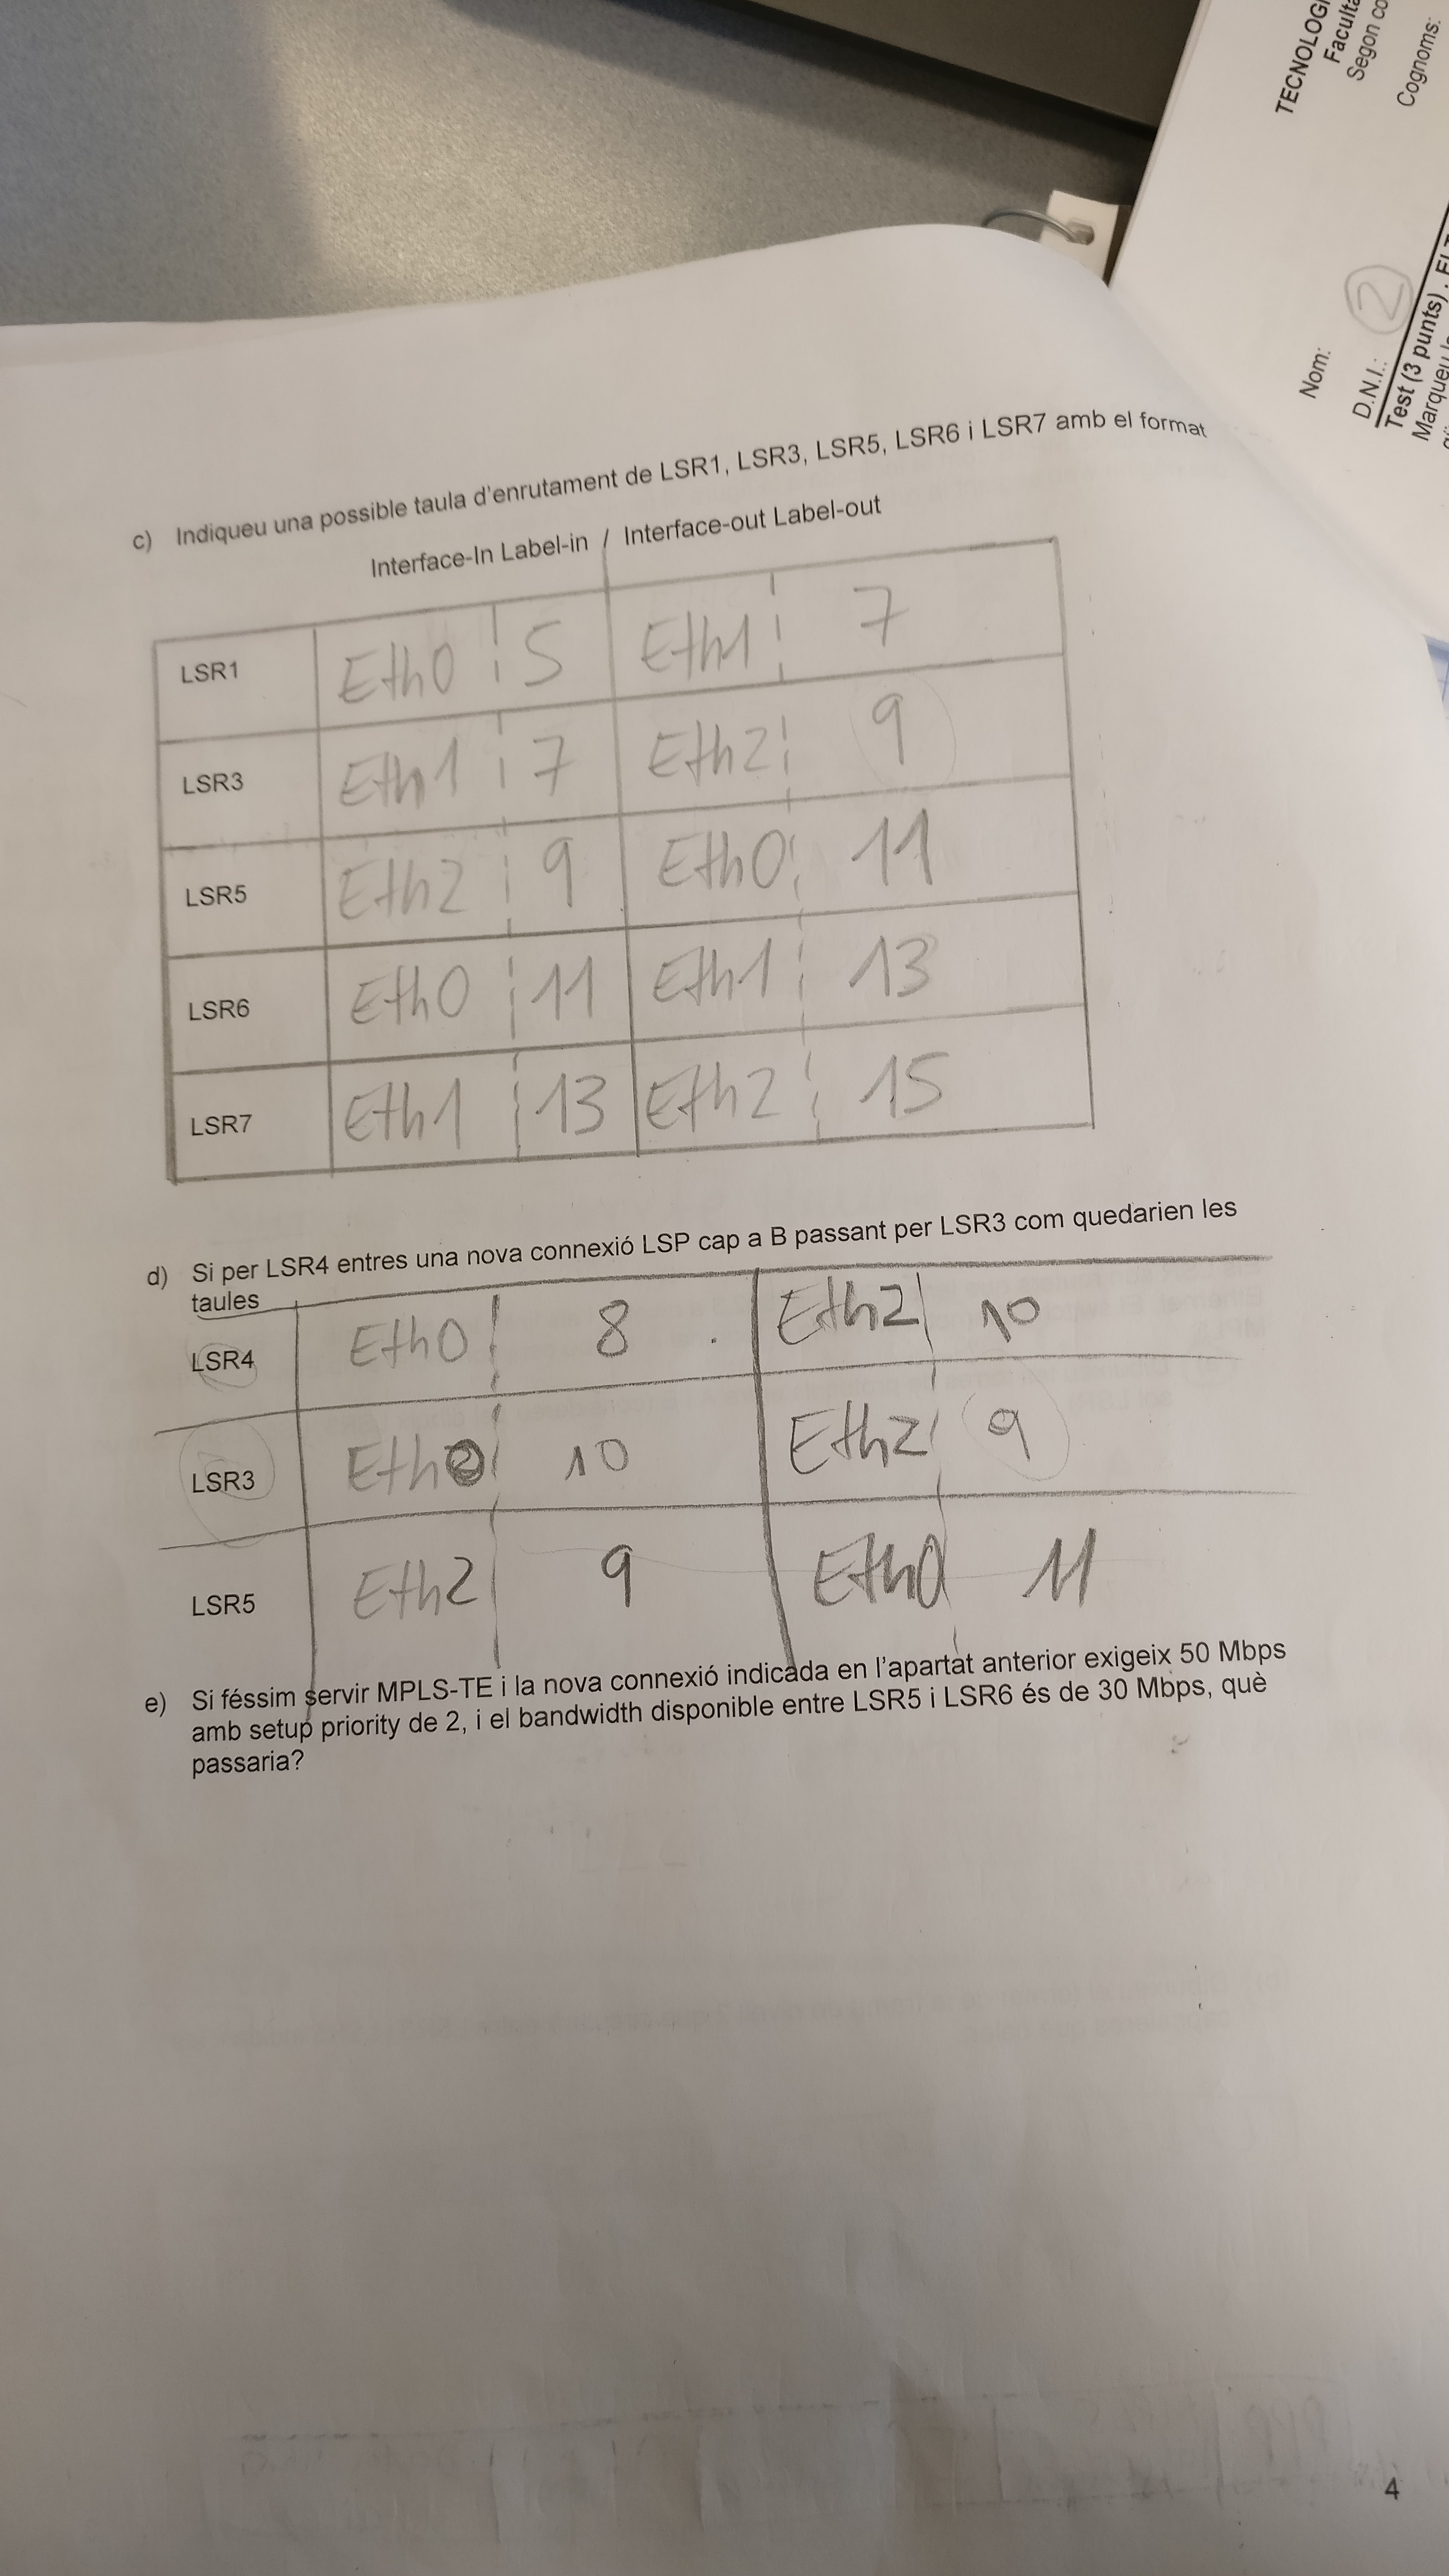 TECNOLOGI
Faculta
Segon co
Cognoms:
Nom:
D.N.I.: 2
Test (3 punts). El T
Marqueu
c) Indiqueu una possible taula d'enrutament de LSR1, LSR3, LSR5, LSR6 i LSR7 amb el format
Interface-In Label-in / Interface-out Label-out
LSR1 Eth0 5 Eth1 7
LSR3 Eth1 7 Eth2 9
LSR5 Eth2 9 Eth0 11
LSR6 Eth0 11 Eth1 13
LSR7 Eth1 13 Eth2 15
d) Si per LSR4 entres una nova connexió LSP cap a B passant per LSR3 com quedarien les
taules
LSR4 Eth0 8 Eth2 10
LSR3 Eth0 10 Eth2 9
LSR5 Eth2 9 Eth0 11
e) Si féssim servir MPLS-TE i la nova connexió indicada en l'apartat anterior exigeix 50 Mbps
amb setup priority de 2, i el bandwidth disponible entre LSR5 i LSR6 és de 30 Mbps, què
passaria?
4